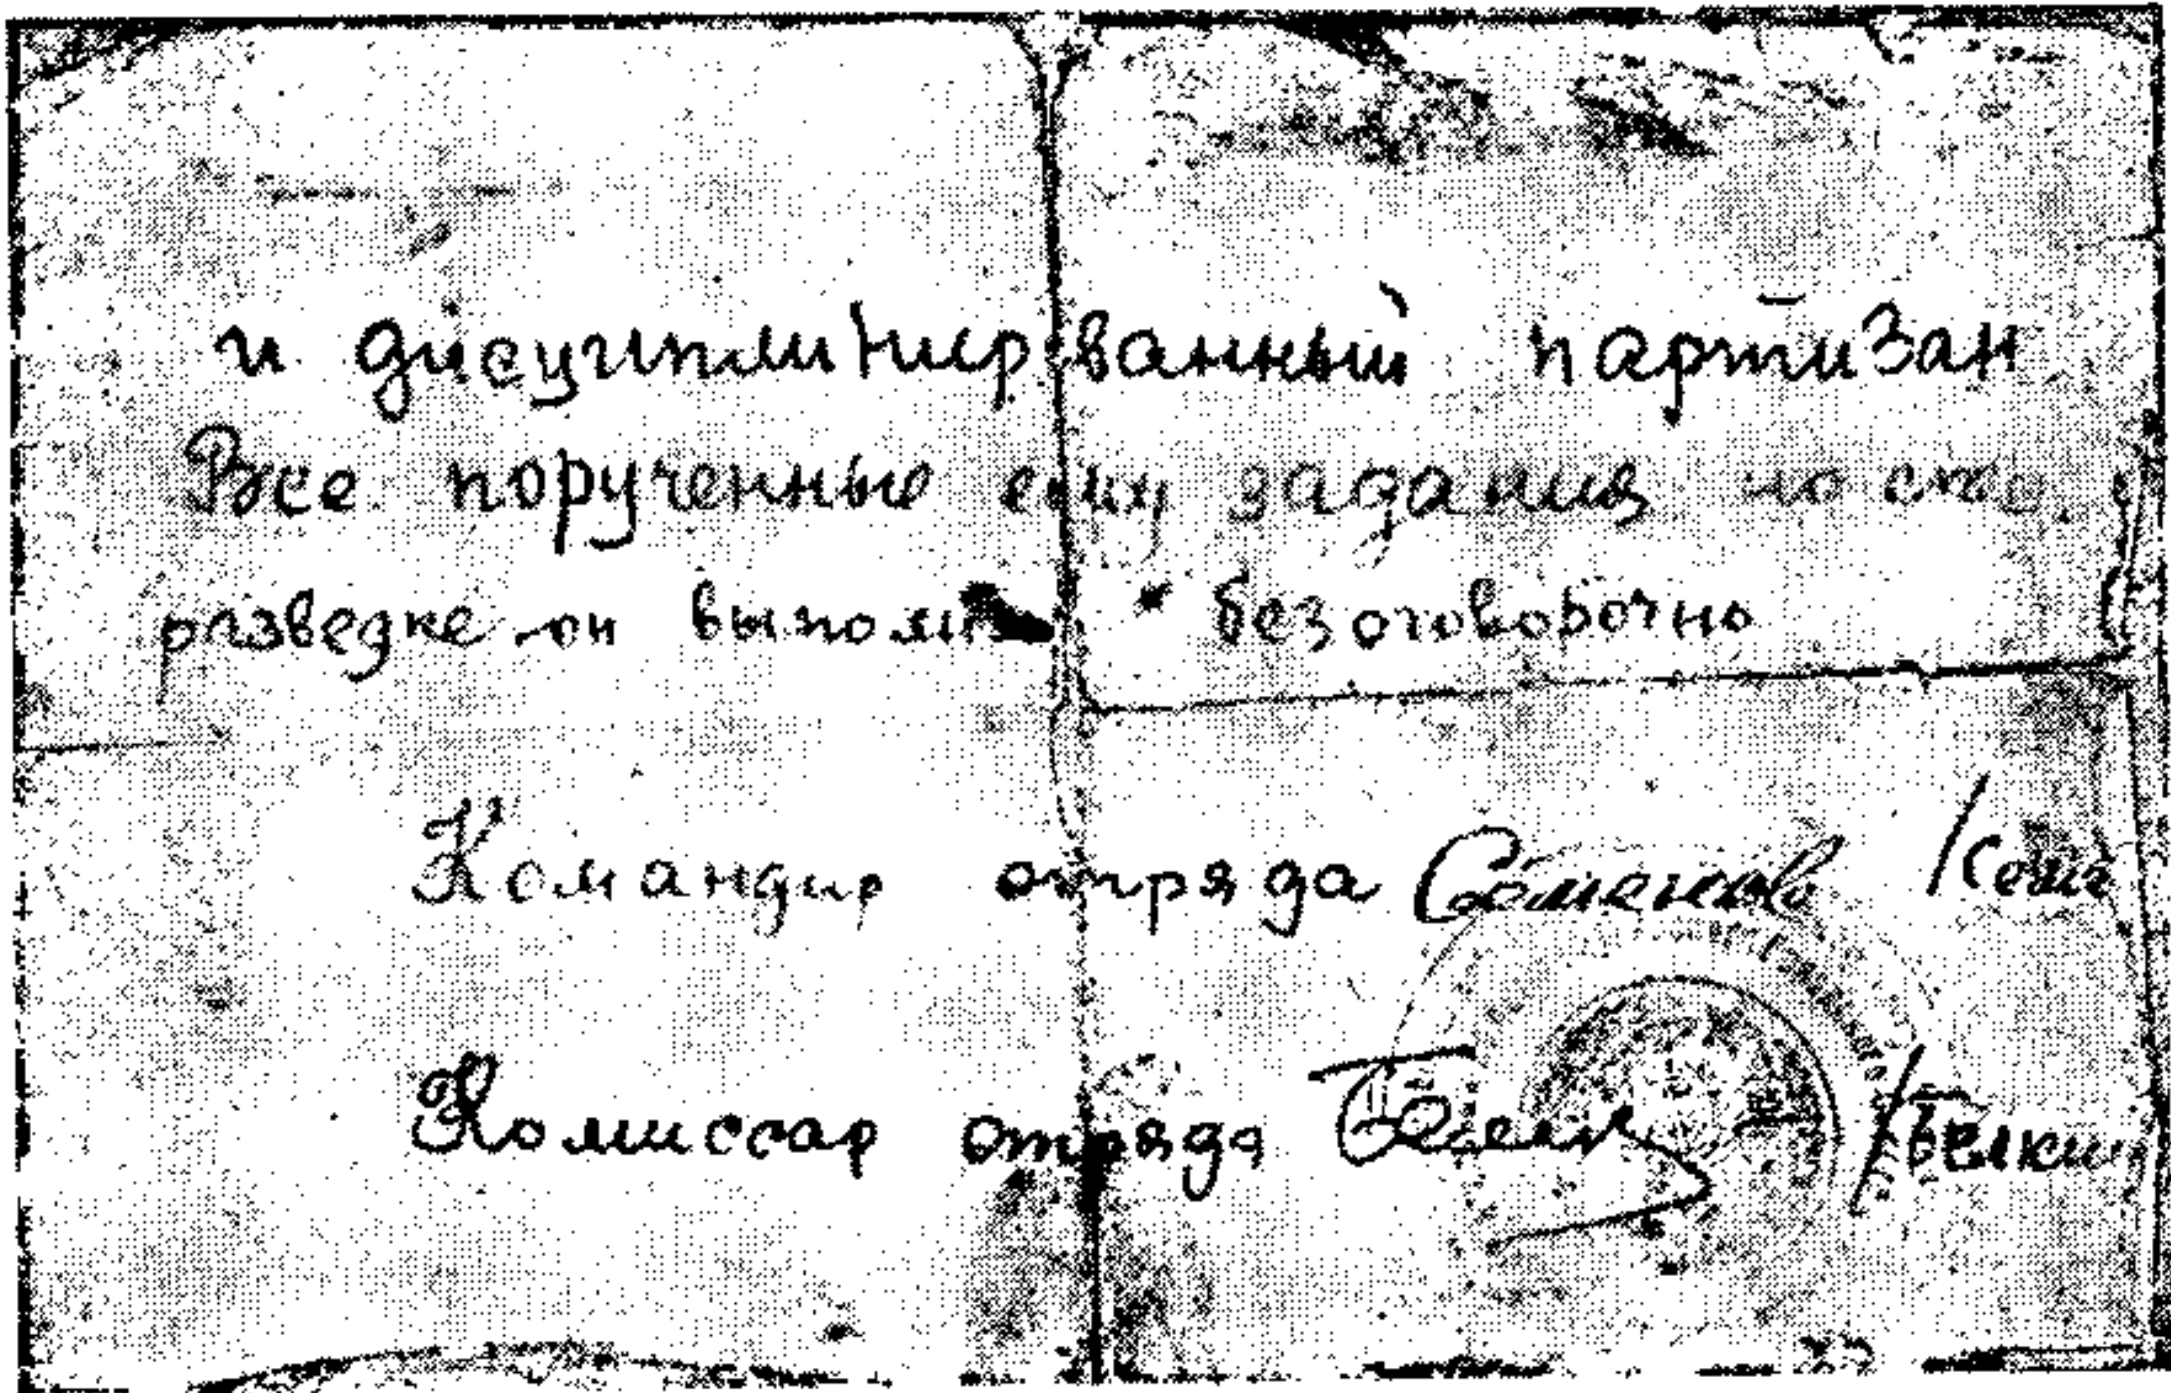 и дисциплинированный партизан
Все порученные ему задания по
разведке он безоговорочно
Командир отряда
Комиссар отряда /Белкин